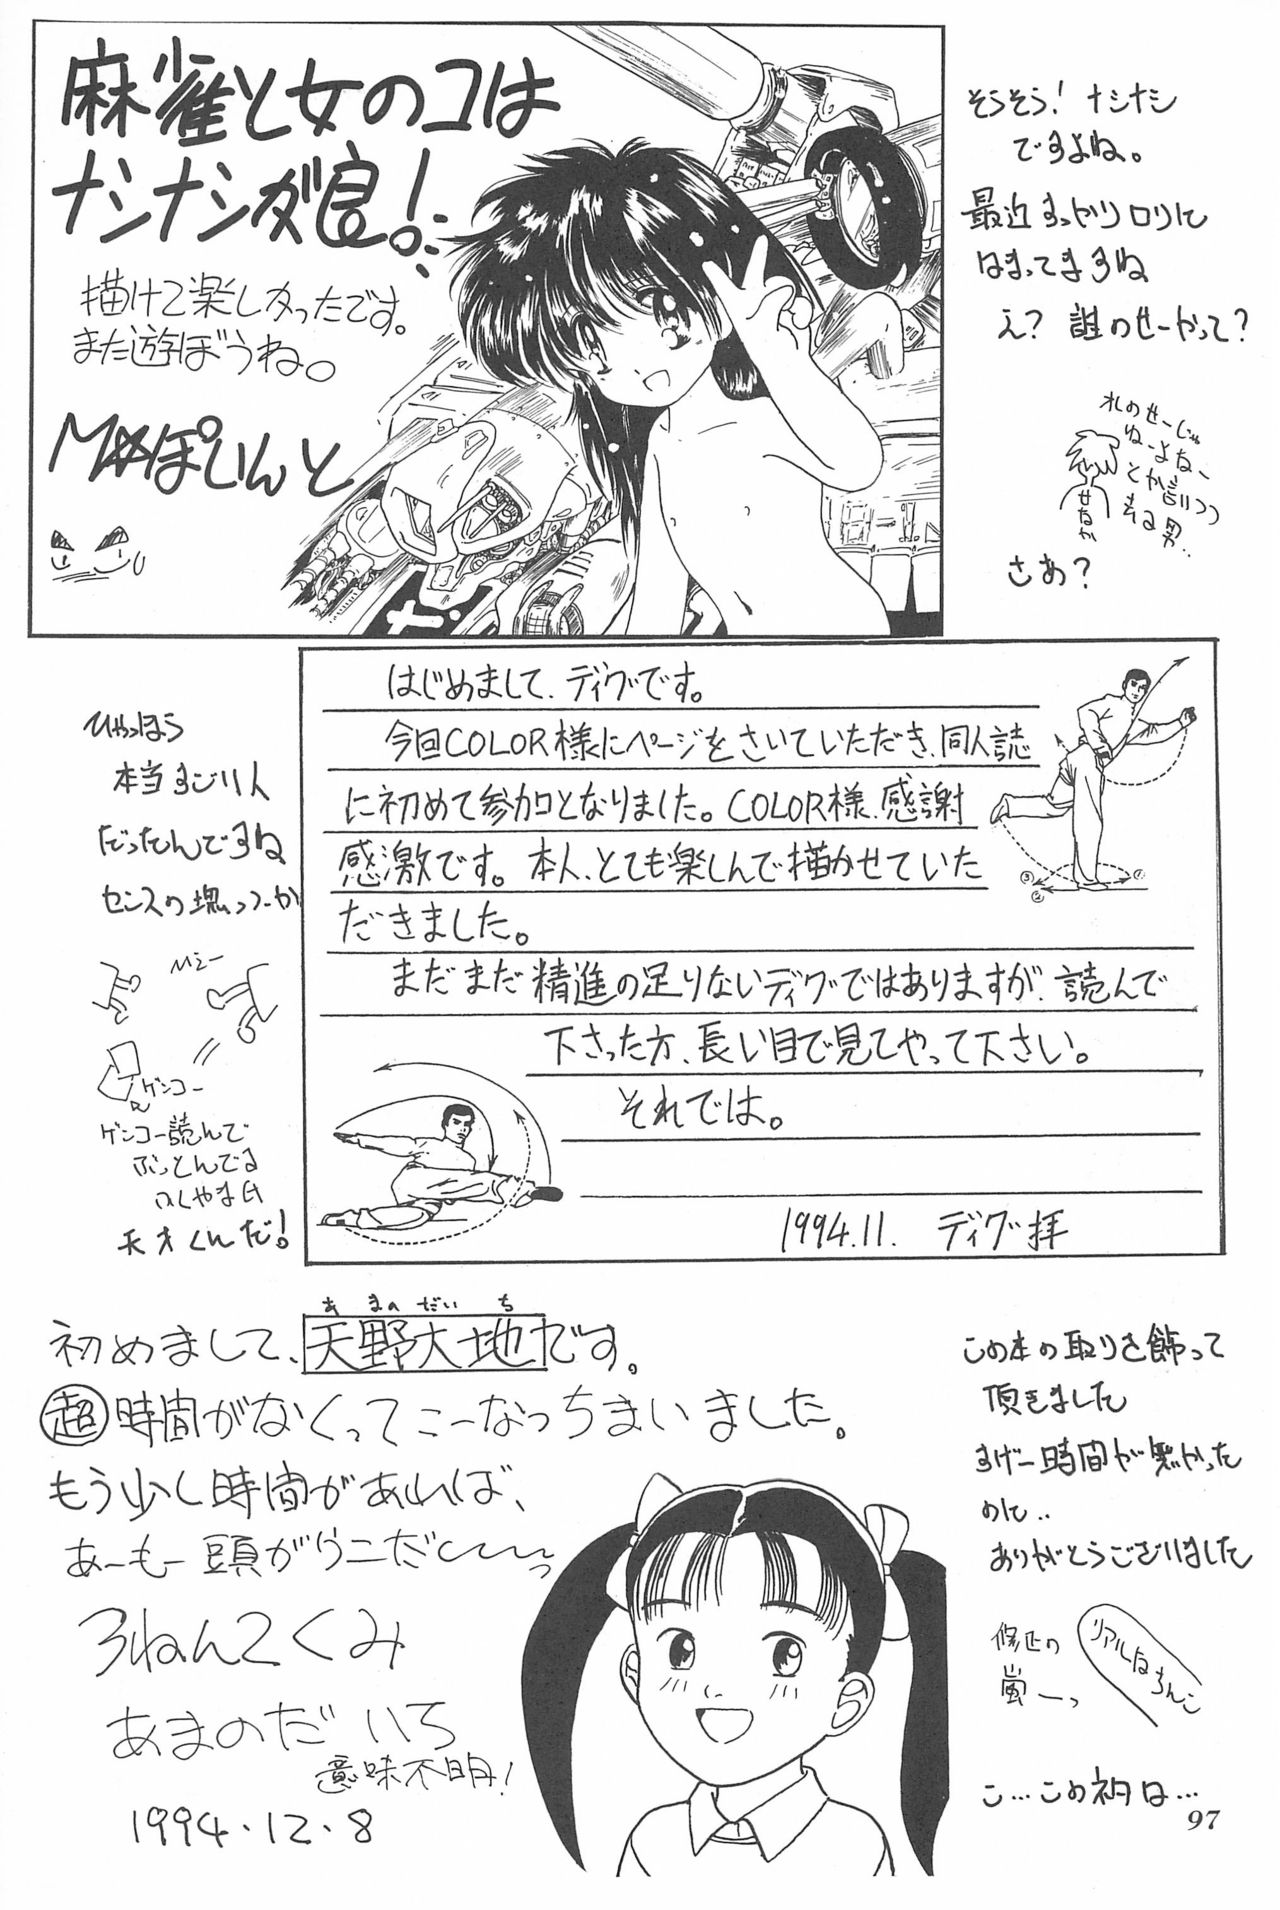 麻雀と女のコは
ナシナシが良!
描けて楽しかったです。
また遊ぼうね。
M☆ぽいんと
そうそう! ナシナシ
ですよね。
最近すっかりロリに
はまってますね
え? 誰のせーかって?
れのせーじゃ
ねーよなー
とか言いつつ
去る男..
せなか
さあ?
はじめまして、ディグです。
今回COLOR様にページをさいていただき、同人誌
に初めて参加となりました。COLOR様、感謝
感激です。本人、とても楽しんで描かせていた
だきました。
まだまだ精進の足りないディグではありますが、読んで
下さった方、長い目で見てやって下さい。
それでは。
1994.11. ディグ拝
③
②
①
ひゃっほう
本当すごい人
だったんですね
センスの塊っつーか
ゲンコー
ゲンコー読んで
ぶっとんでる
ふくやま氏
天才くんだ!
あまのだいち
初めまして、天野大地です。
超時間がなくってこーなっちまいました。
もう少し時間があれば、
あーもー頭がウニだ〜〜〜っ
3ねん2くみ
あまのだいち
意味不明!
1994.12.8
この本の取りを飾って
頂きました
すげー時間が無かった
のに..
ありがとうございました
修正の
嵐ーっ
リアルなちんこ
こ…この衲は…
97